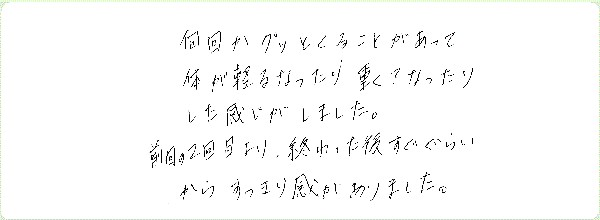 何回かグッとくることがあって
体が軽るなったり重くなったり
した感じがしました。
前回の2回目より、終わった後すぐぐらい
からすっきり感がありました。